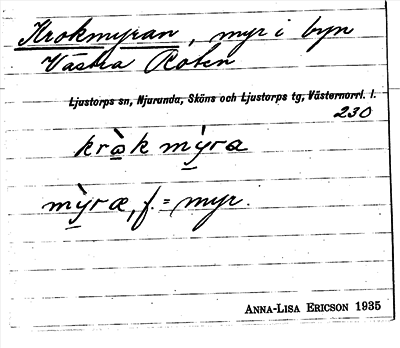 Krokmyran, myr i byn
Västra Roten
Ljustorps sn, Njurunda, Sköns och Ljustorps tg, Västernorrl. l.
230
krò̱k mỳ̱ra
mỳ̱ræ, f. = myr.
ANNA-LISA ERICSON 1935